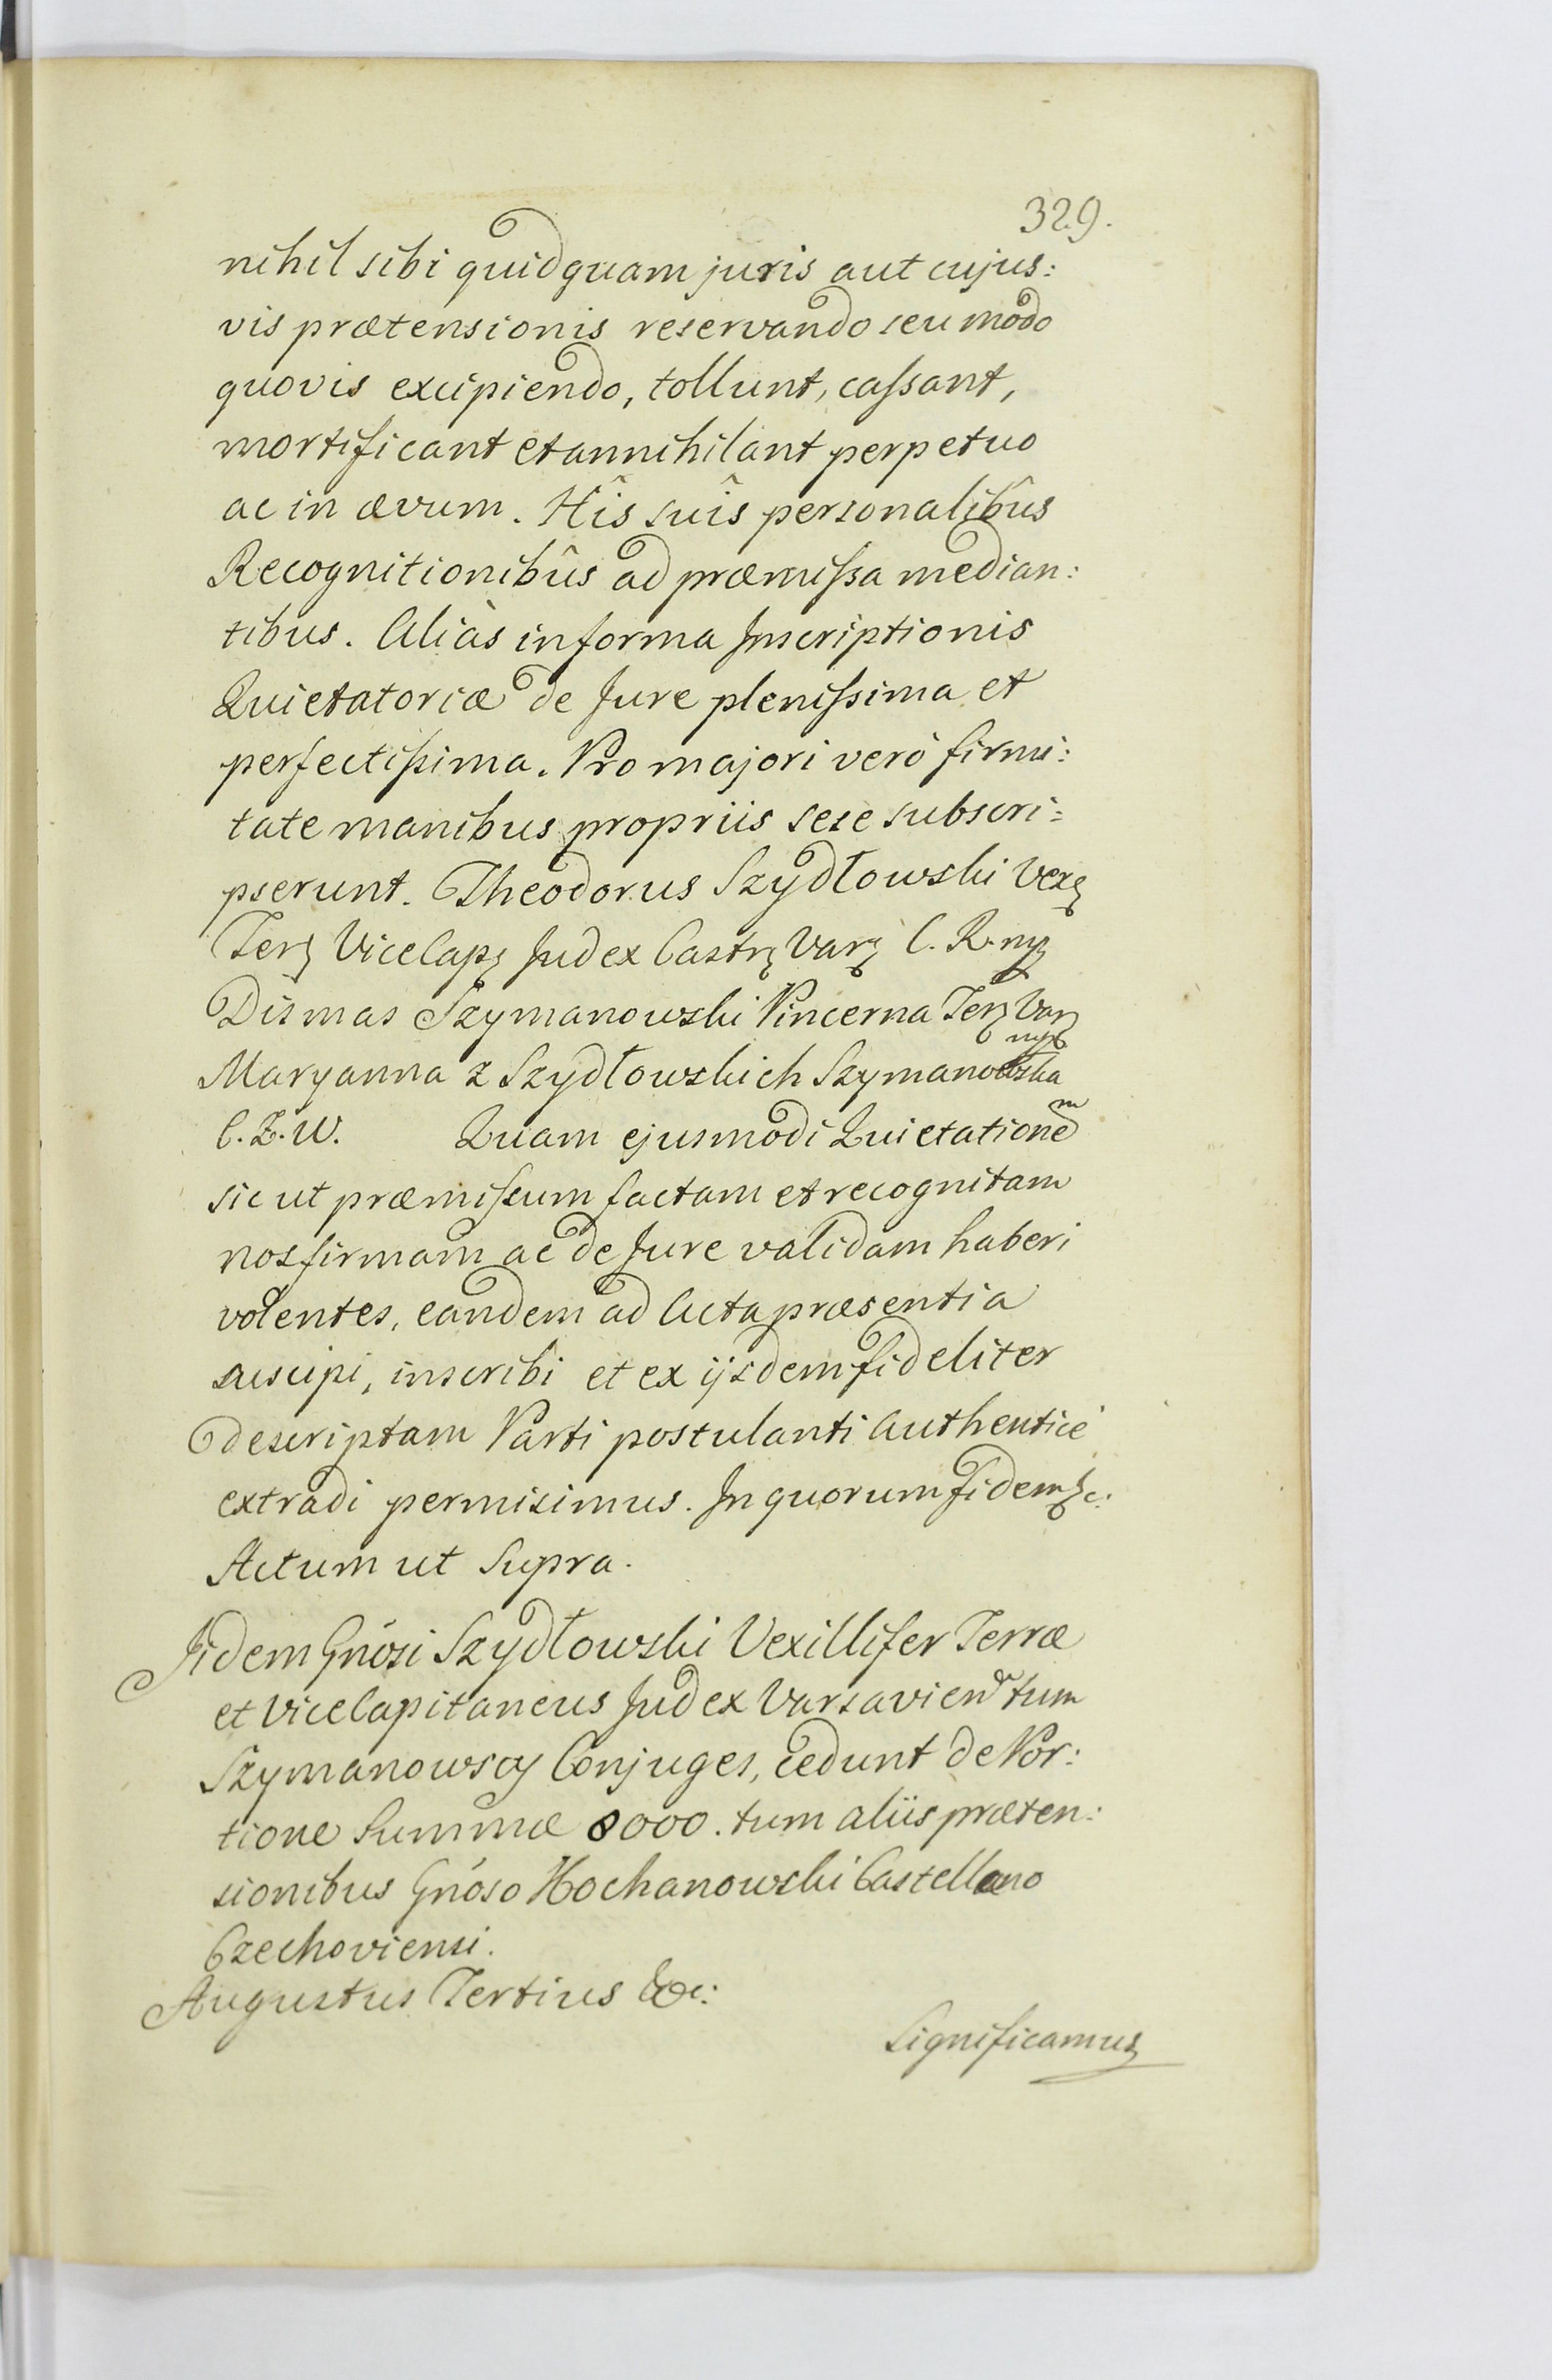 329.
nihil sibi quidquam juris aut cujus:
vis prætensionis reservando seu modo
quovis excipiendo, tollunt, cassant,
mortificant et annihilant perpetuo
ac in ævum. Hîs suîs personalibûs
Recognitionibûs ad præmissa median:
tibus. Aliàs in forma Inscriptionis
Quietatoriæ de Jure plenissima et
perfectissima. Pro majori verò firmi:
tate manibus propriis sese subscri:
pserunt. Theodorus Szydłowski Vex
Ter Vice Cap Judex Castr Var C. R. mp
Dismas Szymanowski Pincerna Ter Var
mp
Maryanna z Szydłowskich Szymanowska
C. Z. W. Quam ejusmodi Quietationem
sic ut præmissum factam et recognitam
nos firmam ac de Jure validam haberi
volentes, eandem ad Acta præsentia
suscipi, inscribi et ex ijsdem fideliter
descriptam Parti postulanti Authenticè
extradi permisimus. In quorum fidem &c:
Actum ut Supra.
Iidem Gnosi Szydłowski Vexillifer Terræ
et Vice Capitaneus Judex Varsavien tum
Szymanowscy Conjuges, cedunt de Por:
tione Summæ 8000. tum aliis præten:
sionibus Gnoso Kochanowski Castellano
Czechoviensi.
Augustus Tertius &c:
Significamus